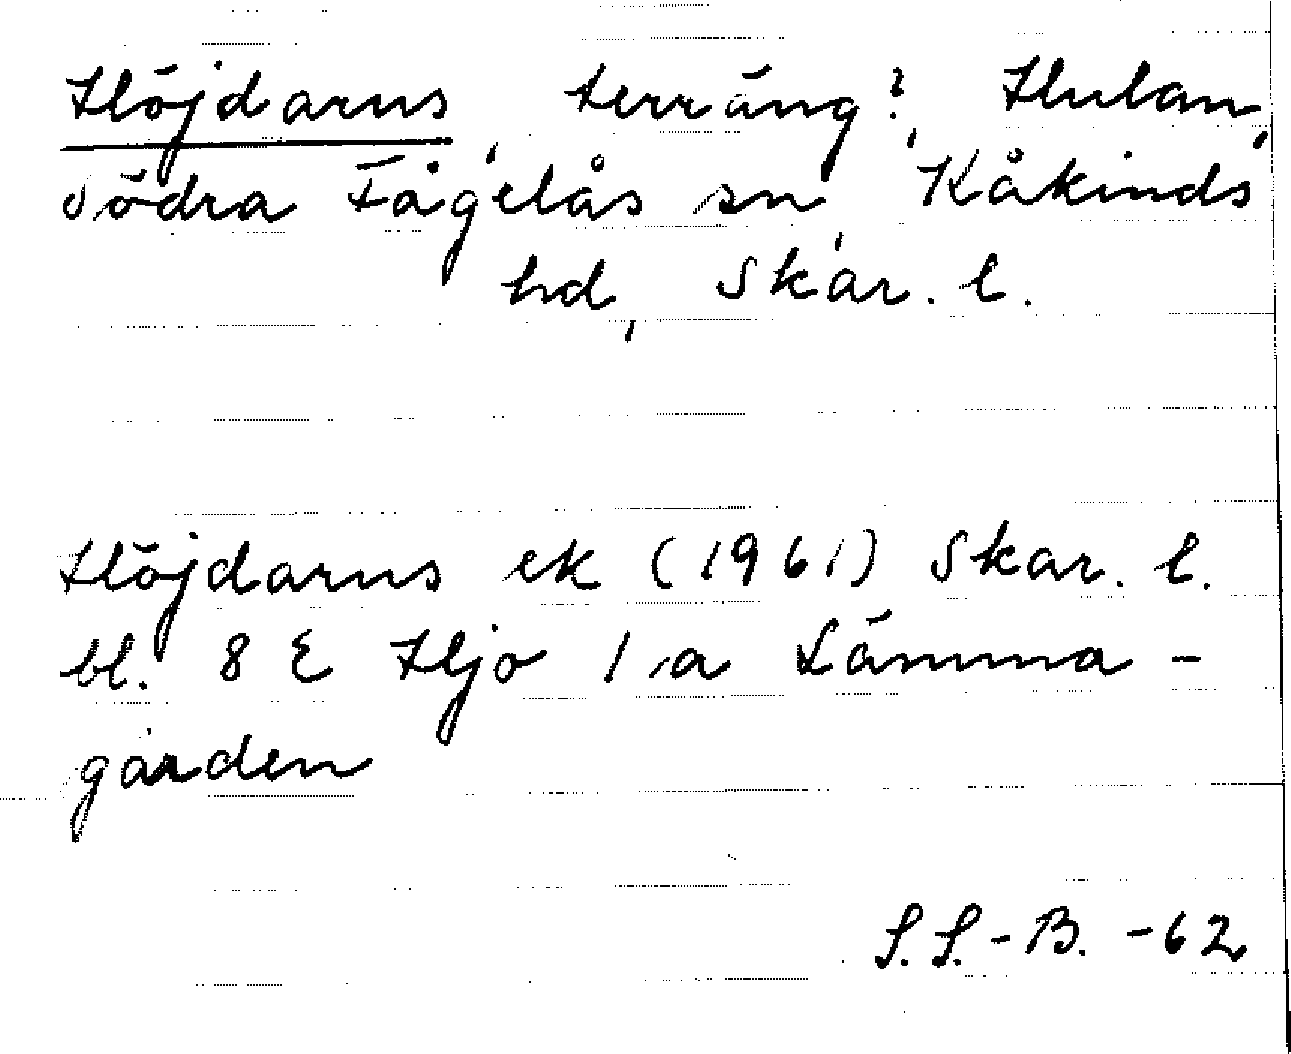 Höjdarns, terräng?, Hulan,
Södra Fågelås sn, Kåkinds
hd, Skar. l.
Höjdarns ek (1961) Skar. l.
bl. 8 E Hjo 1 a Lämma-
gården
S.S.-B. -62